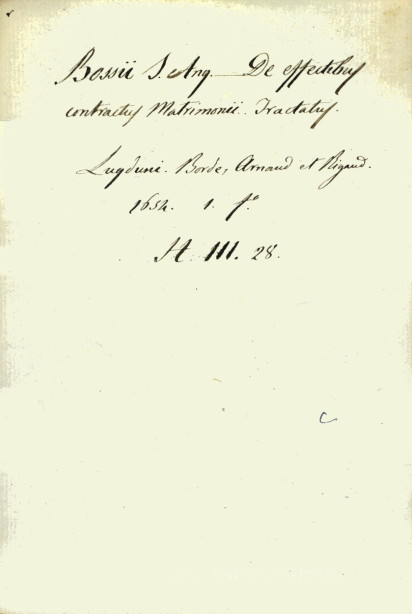 Bossii J. Ang. — De effectibus
contractus Matrimonii. Tractatus.
Lugduni. Borde, Arnaud et Rigaud.
1654. 1. fo
H. III. 28.
c